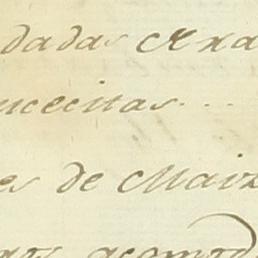 dadas Exa
ncecitas...
es de Maiz
acomod